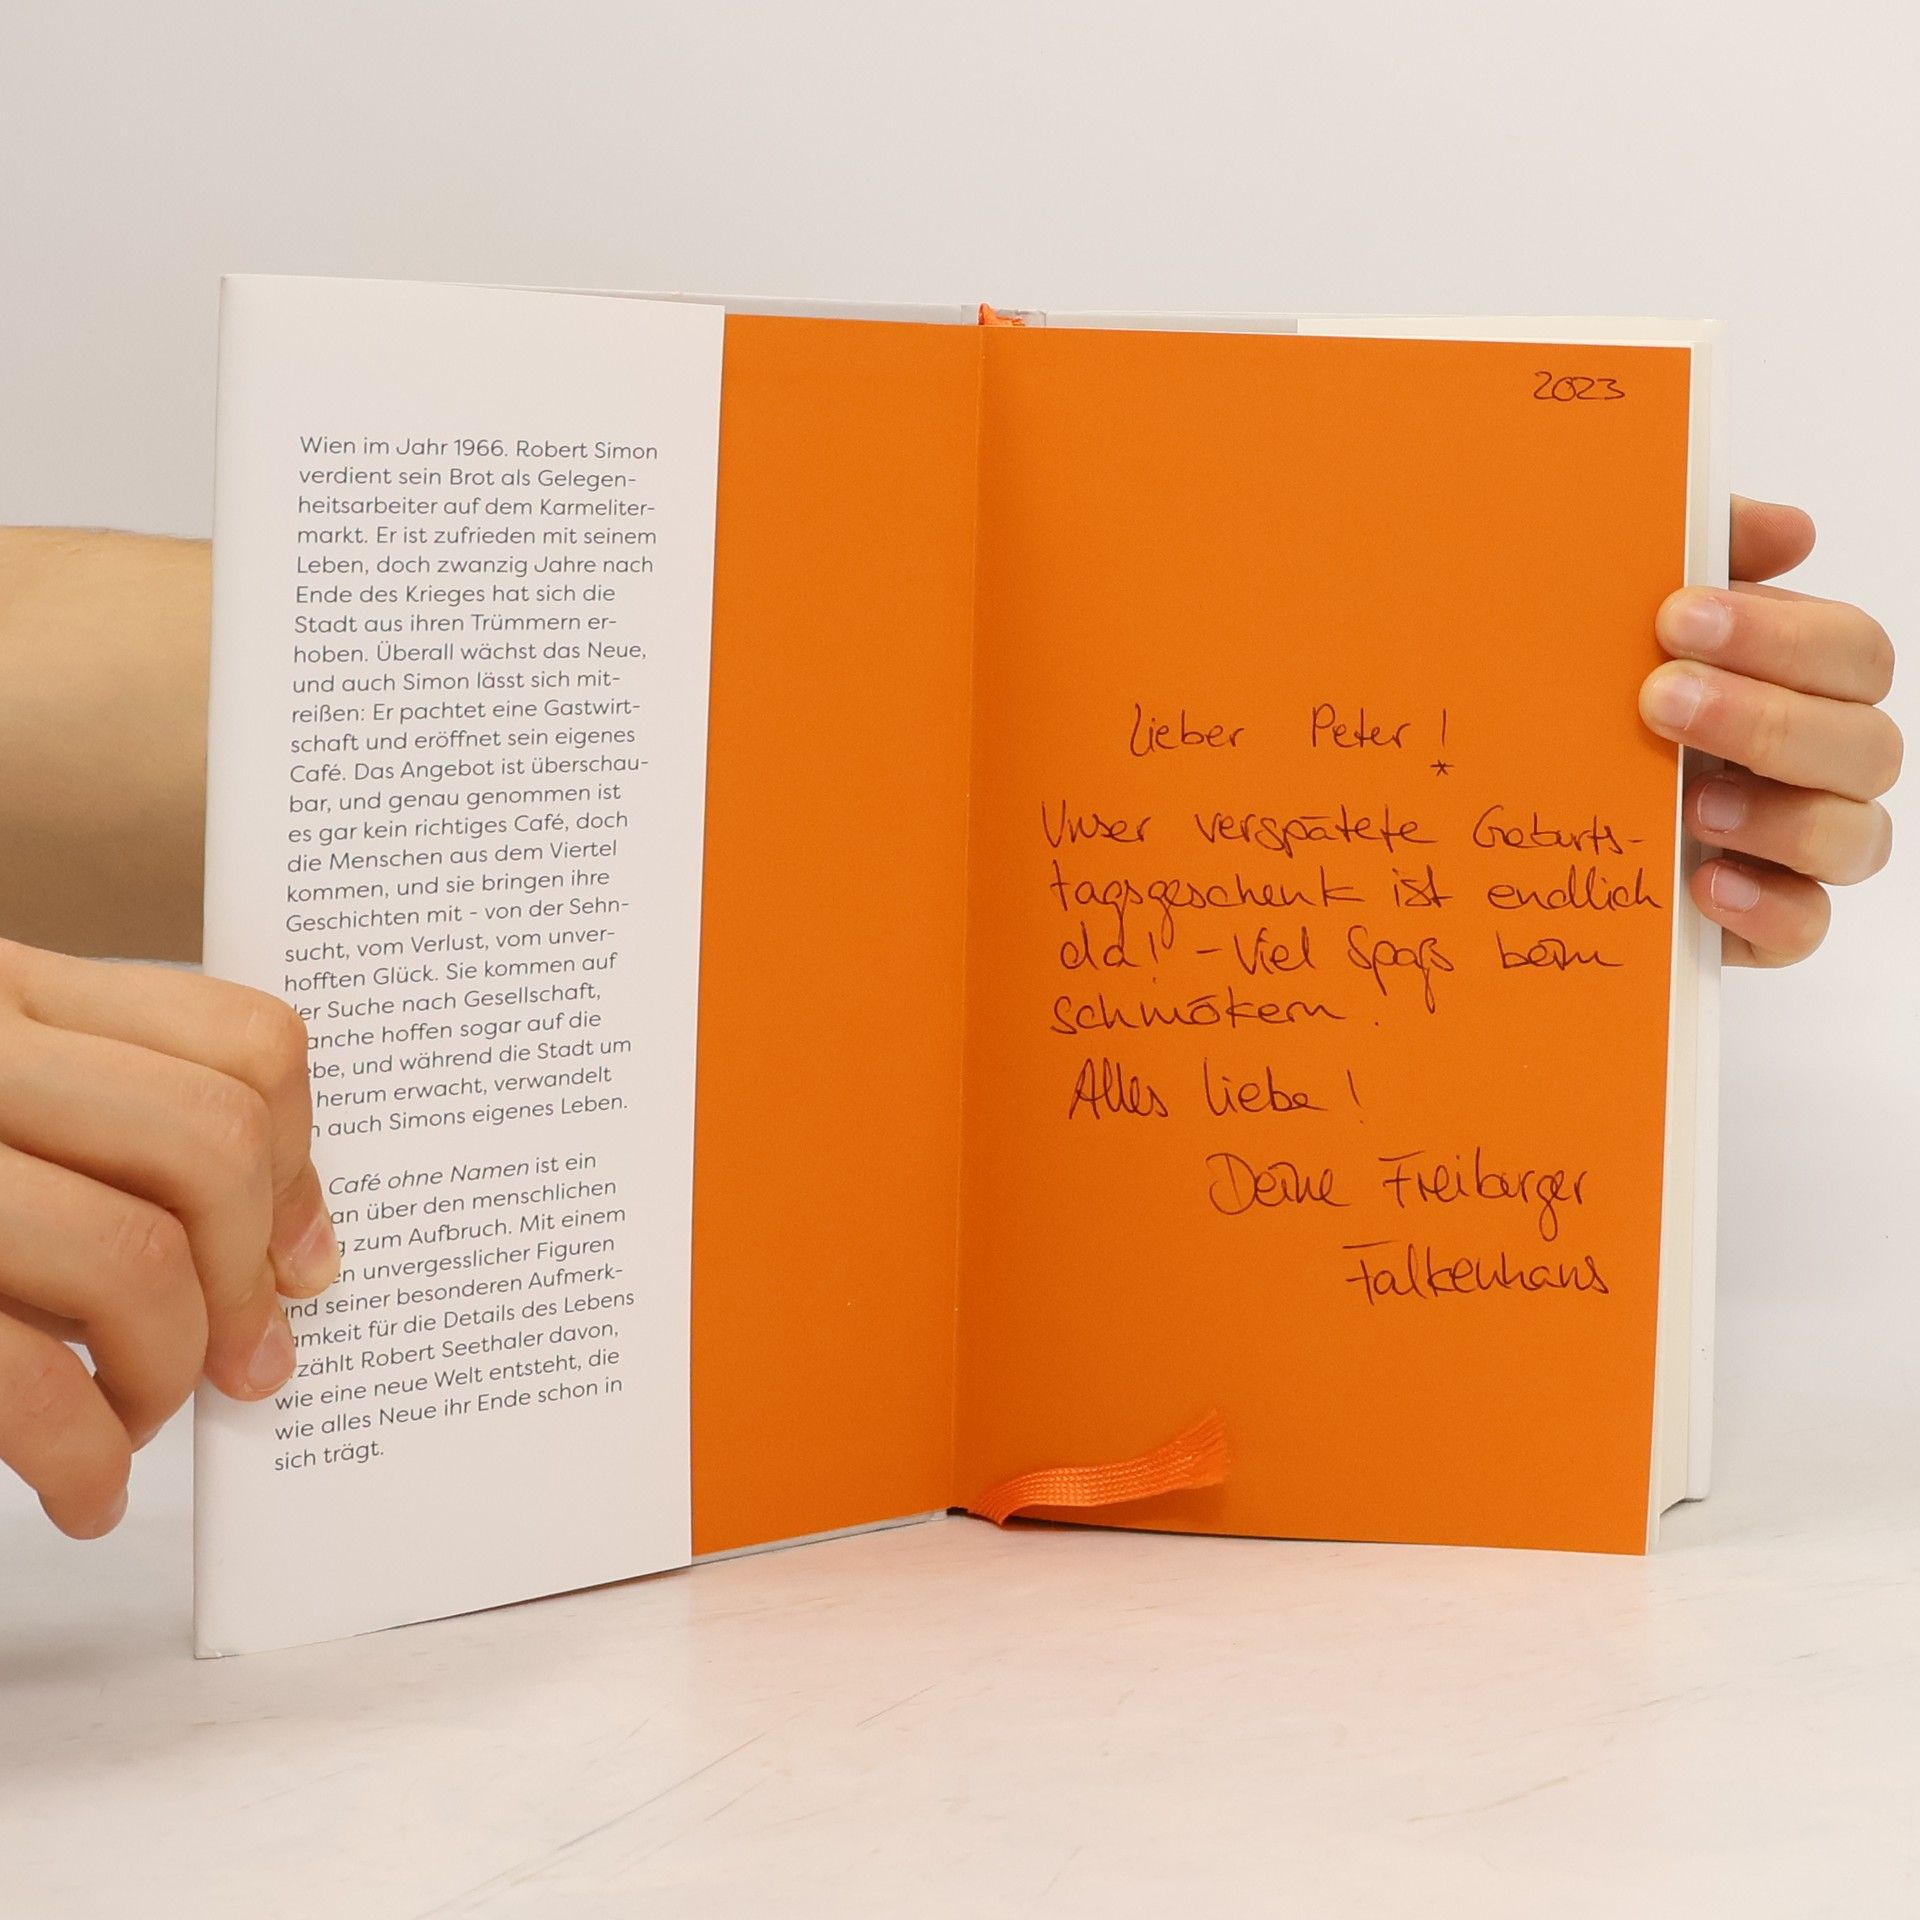 Wien im Jahr 1966. Robert Simon
verdient sein Brot als Gelegen-
heitsarbeiter auf dem Karmeliter-
markt. Er ist zufrieden mit seinem
Leben, doch zwanzig Jahre nach
Ende des Krieges hat sich die
Stadt aus ihren Trümmern er-
hoben. Überall wächst das Neue,
und auch Simon lässt sich mit-
reißen: Er pachtet eine Gastwirt-
schaft und eröffnet sein eigenes
Café. Das Angebot ist überschau-
bar, und genau genommen ist
es gar kein richtiges Café, doch
die Menschen aus dem Viertel
kommen, und sie bringen ihre
Geschichten mit - von der Sehn-
sucht, vom Verlust, vom unver-
hofften Glück. Sie kommen auf
der Suche nach Gesellschaft,
anche hoffen sogar auf die
ebe, und während die Stadt um
herum erwacht, verwandelt
auch Simons eigenes Leben.
Café ohne Namen ist ein
an über den menschlichen
g zum Aufbruch. Mit einem
en unvergesslicher Figuren
und seiner besonderen Aufmerk-
amkeit für die Details des Lebens
zählt Robert Seethaler davon,
wie eine neue Welt entsteht, die
wie alles Neue ihr Ende schon in
sich trägt.
2023
Lieber Peter!
*
Unser verspätete Geburts-
tagsgeschenk ist endlich
da! - Viel Spaß beim
Schmökern!
Alles Liebe!
Deine Freiburger
Falkenhans